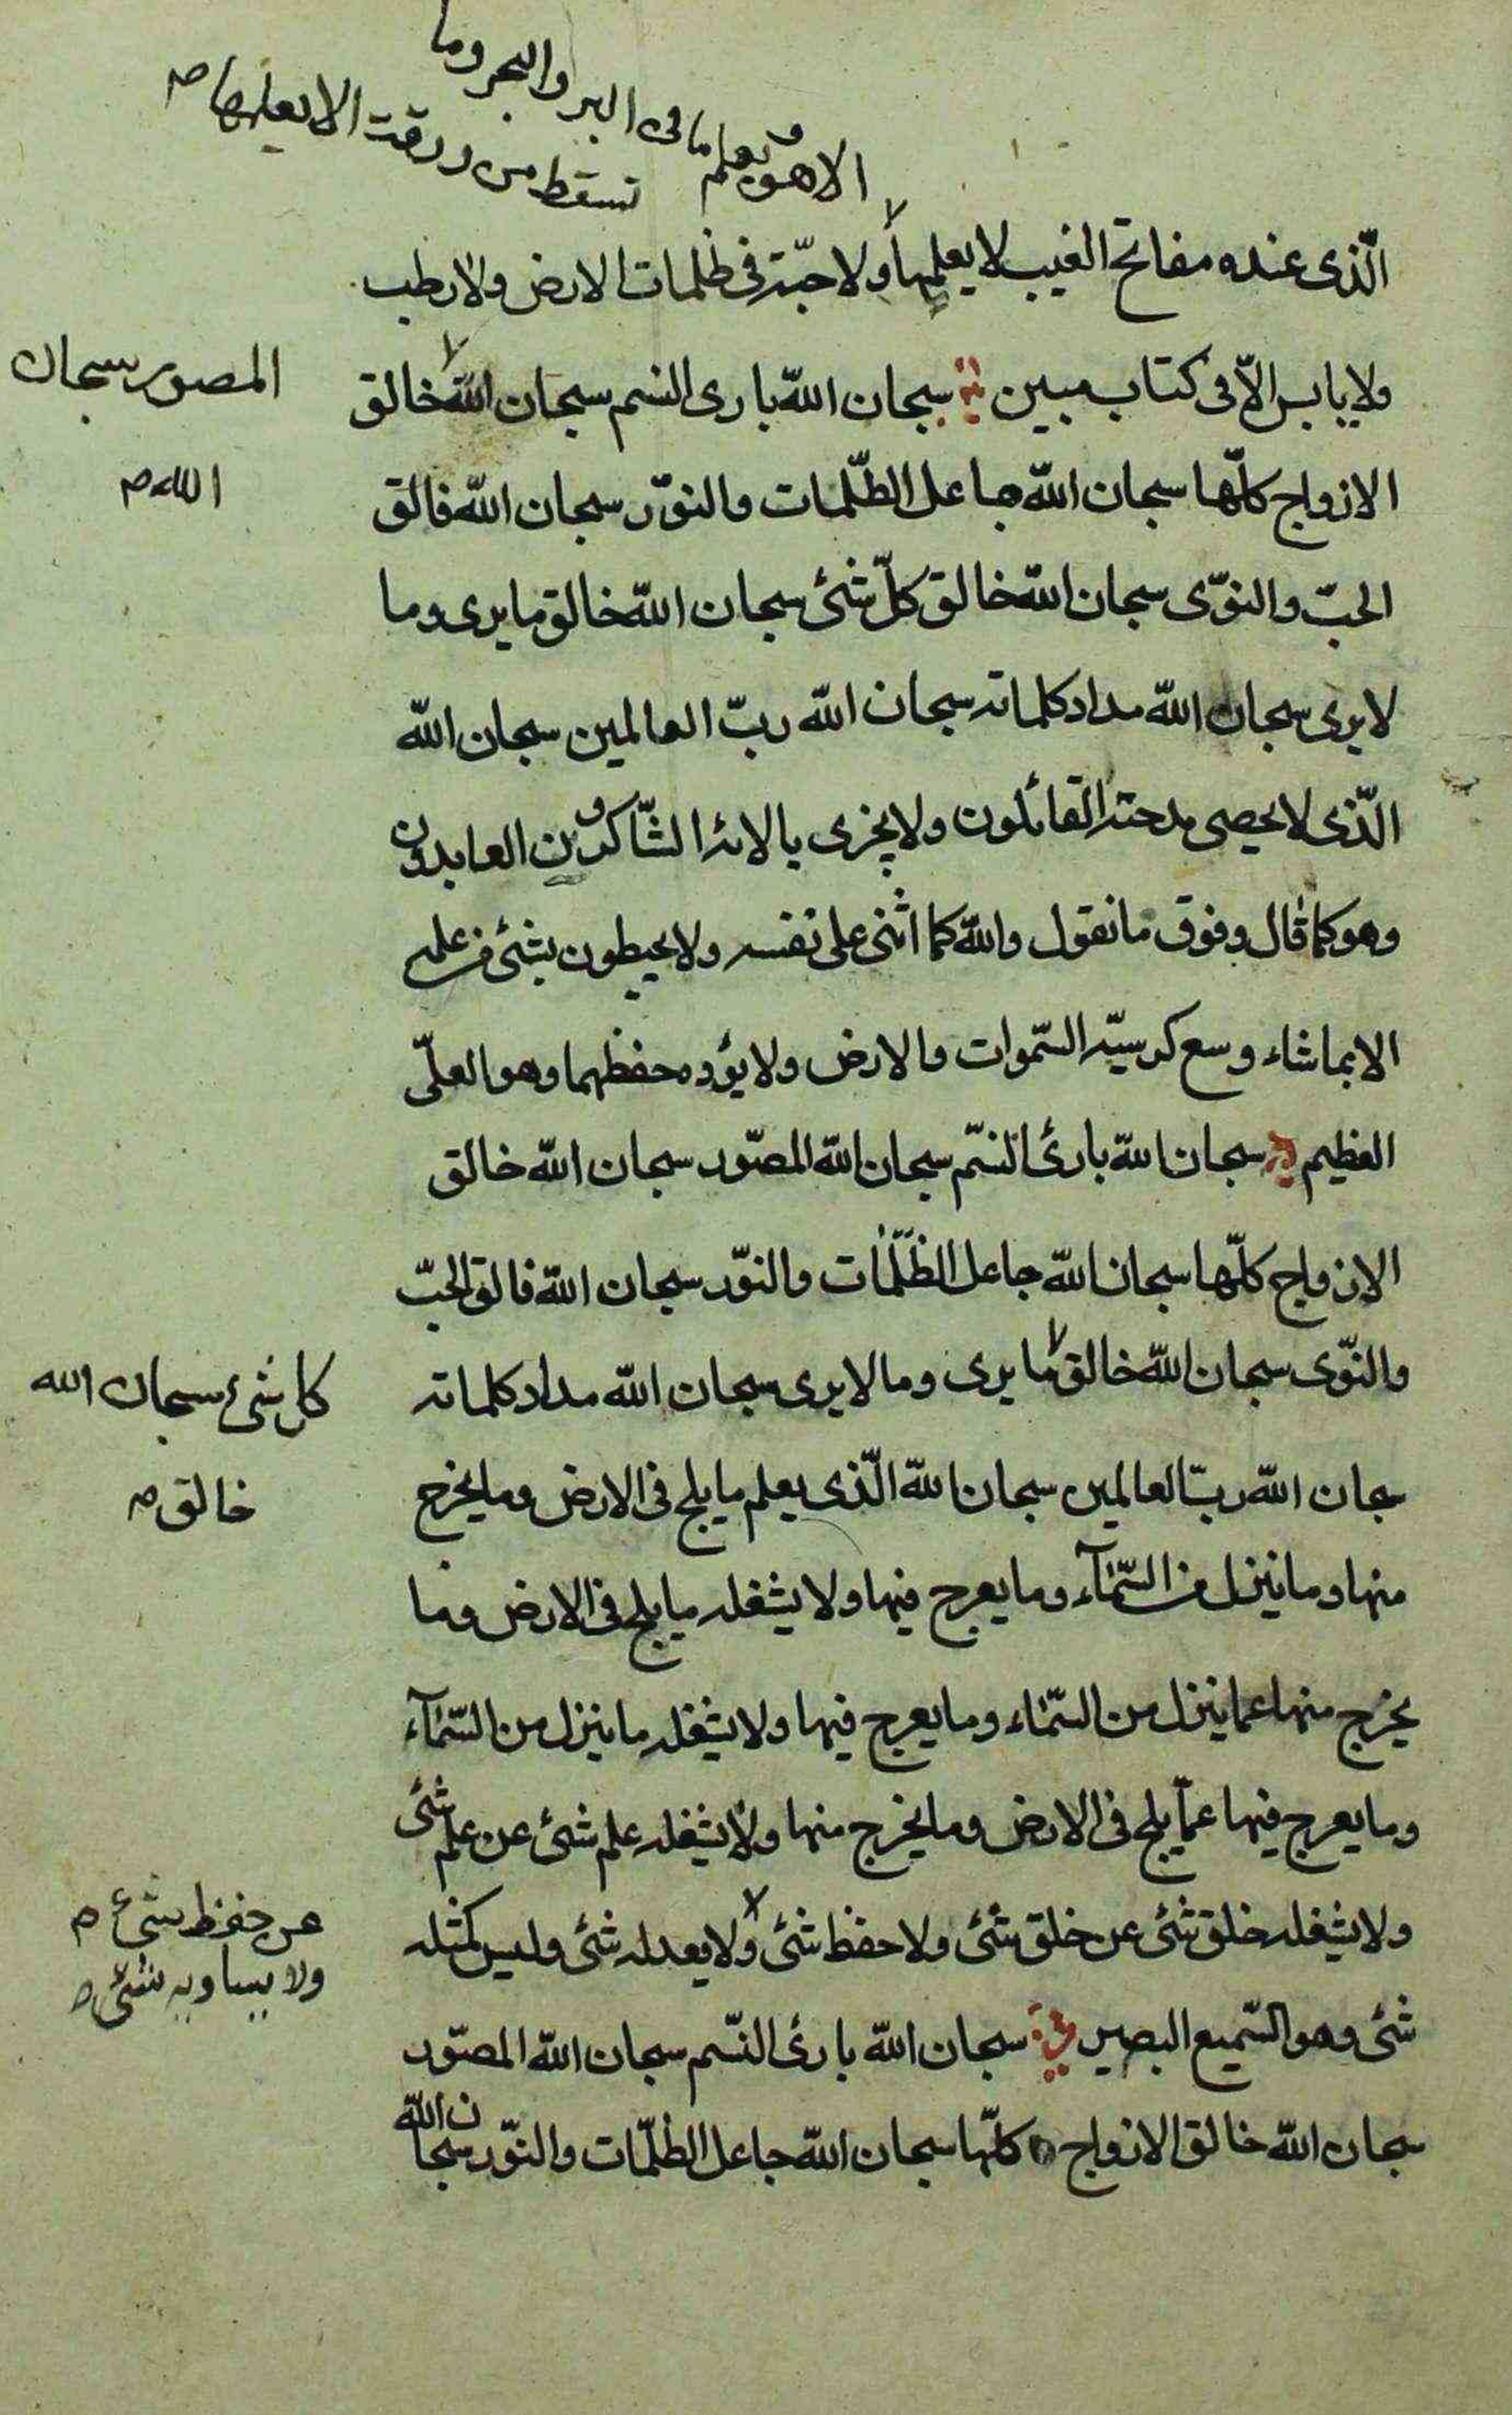 الا هو و يعلم ما فى البر والبحر وما
تسقط من ورقت الا يعلمها صح
الّذى عنده مفاتح الغيب لا يعلمها ولا حبّة فى ظلمات الارض ولا رطب
ولا يابس الاّ فى كتاب مبين سبحان اللّه بارى النسم سبحان اللّه خالق
المصور سبحان
الله صح
الازواج كلّها سبحان اللّه جاعل الظّلمات والنوّر سبحان اللّه فالق
الحبّ والنوّى سبحان اللّه خالق كلّ شئ سبحان اللّه خالق ما يرى وما
لا يرى سبحان اللّه مداد كلماته سبحان اللّه ربّ العالمين سبحان اللّه
الّذى لا يحصى مدحته القائلون ولا يجزى بالائه الشّاكرون العابدون
وهو كما قال وفوق ما نقول واللّه كما اثنى على نفسه ولا يحيطون بشئ من علمه
الا بما شاء وسع كرسيّه السّموات والارض ولا يؤده حفظهما وهو العلّى
العظيم سبحان اللّه بارئ النسّم سبحان اللّه المصوّر سبحان اللّه خالق
الازواج كلّها سبحان اللّه جاعل الظّلّمات والنوّر سبحان اللّه فالق الحبّ
والنوّى سبحان اللّه خالق ما يرى وما لا يرى سبحان اللّه مداد كلماته
كل شئ سبحان الله
خالق صح
سبحان اللّه ربّ العالمين سبحان اللّه الّذى يعلم ما يلج فى الارض وما يخرج
منها وما ينزل من السّمآء وما يعرج فيها ولا يشغله ما يلج فى الارض وما
يخرج منها عما ينزل من السّماء وما يعرج فيها ولا يشغله ما ينزل من السّمآء
وما يعرج فيها عمّا يلج فى الارض وما يخرج منها ولا يشغله علم شئ عن علم شئ
ولا يشغله خلق شئ عن خلق شئ ولا حفظ شئ ولا يعدله شئ وليس كمثله
عن حفظ شئ صح
ولا يساويه شئ صح
شئ وهو السّميع البصير سبحان اللّه بارئ النسّم سبحان اللّه المصوّر
سبحان اللّه خالق الازواج كلّها سبحان اللّه جاعل الظلّمات والنوّر سبحان اللّه